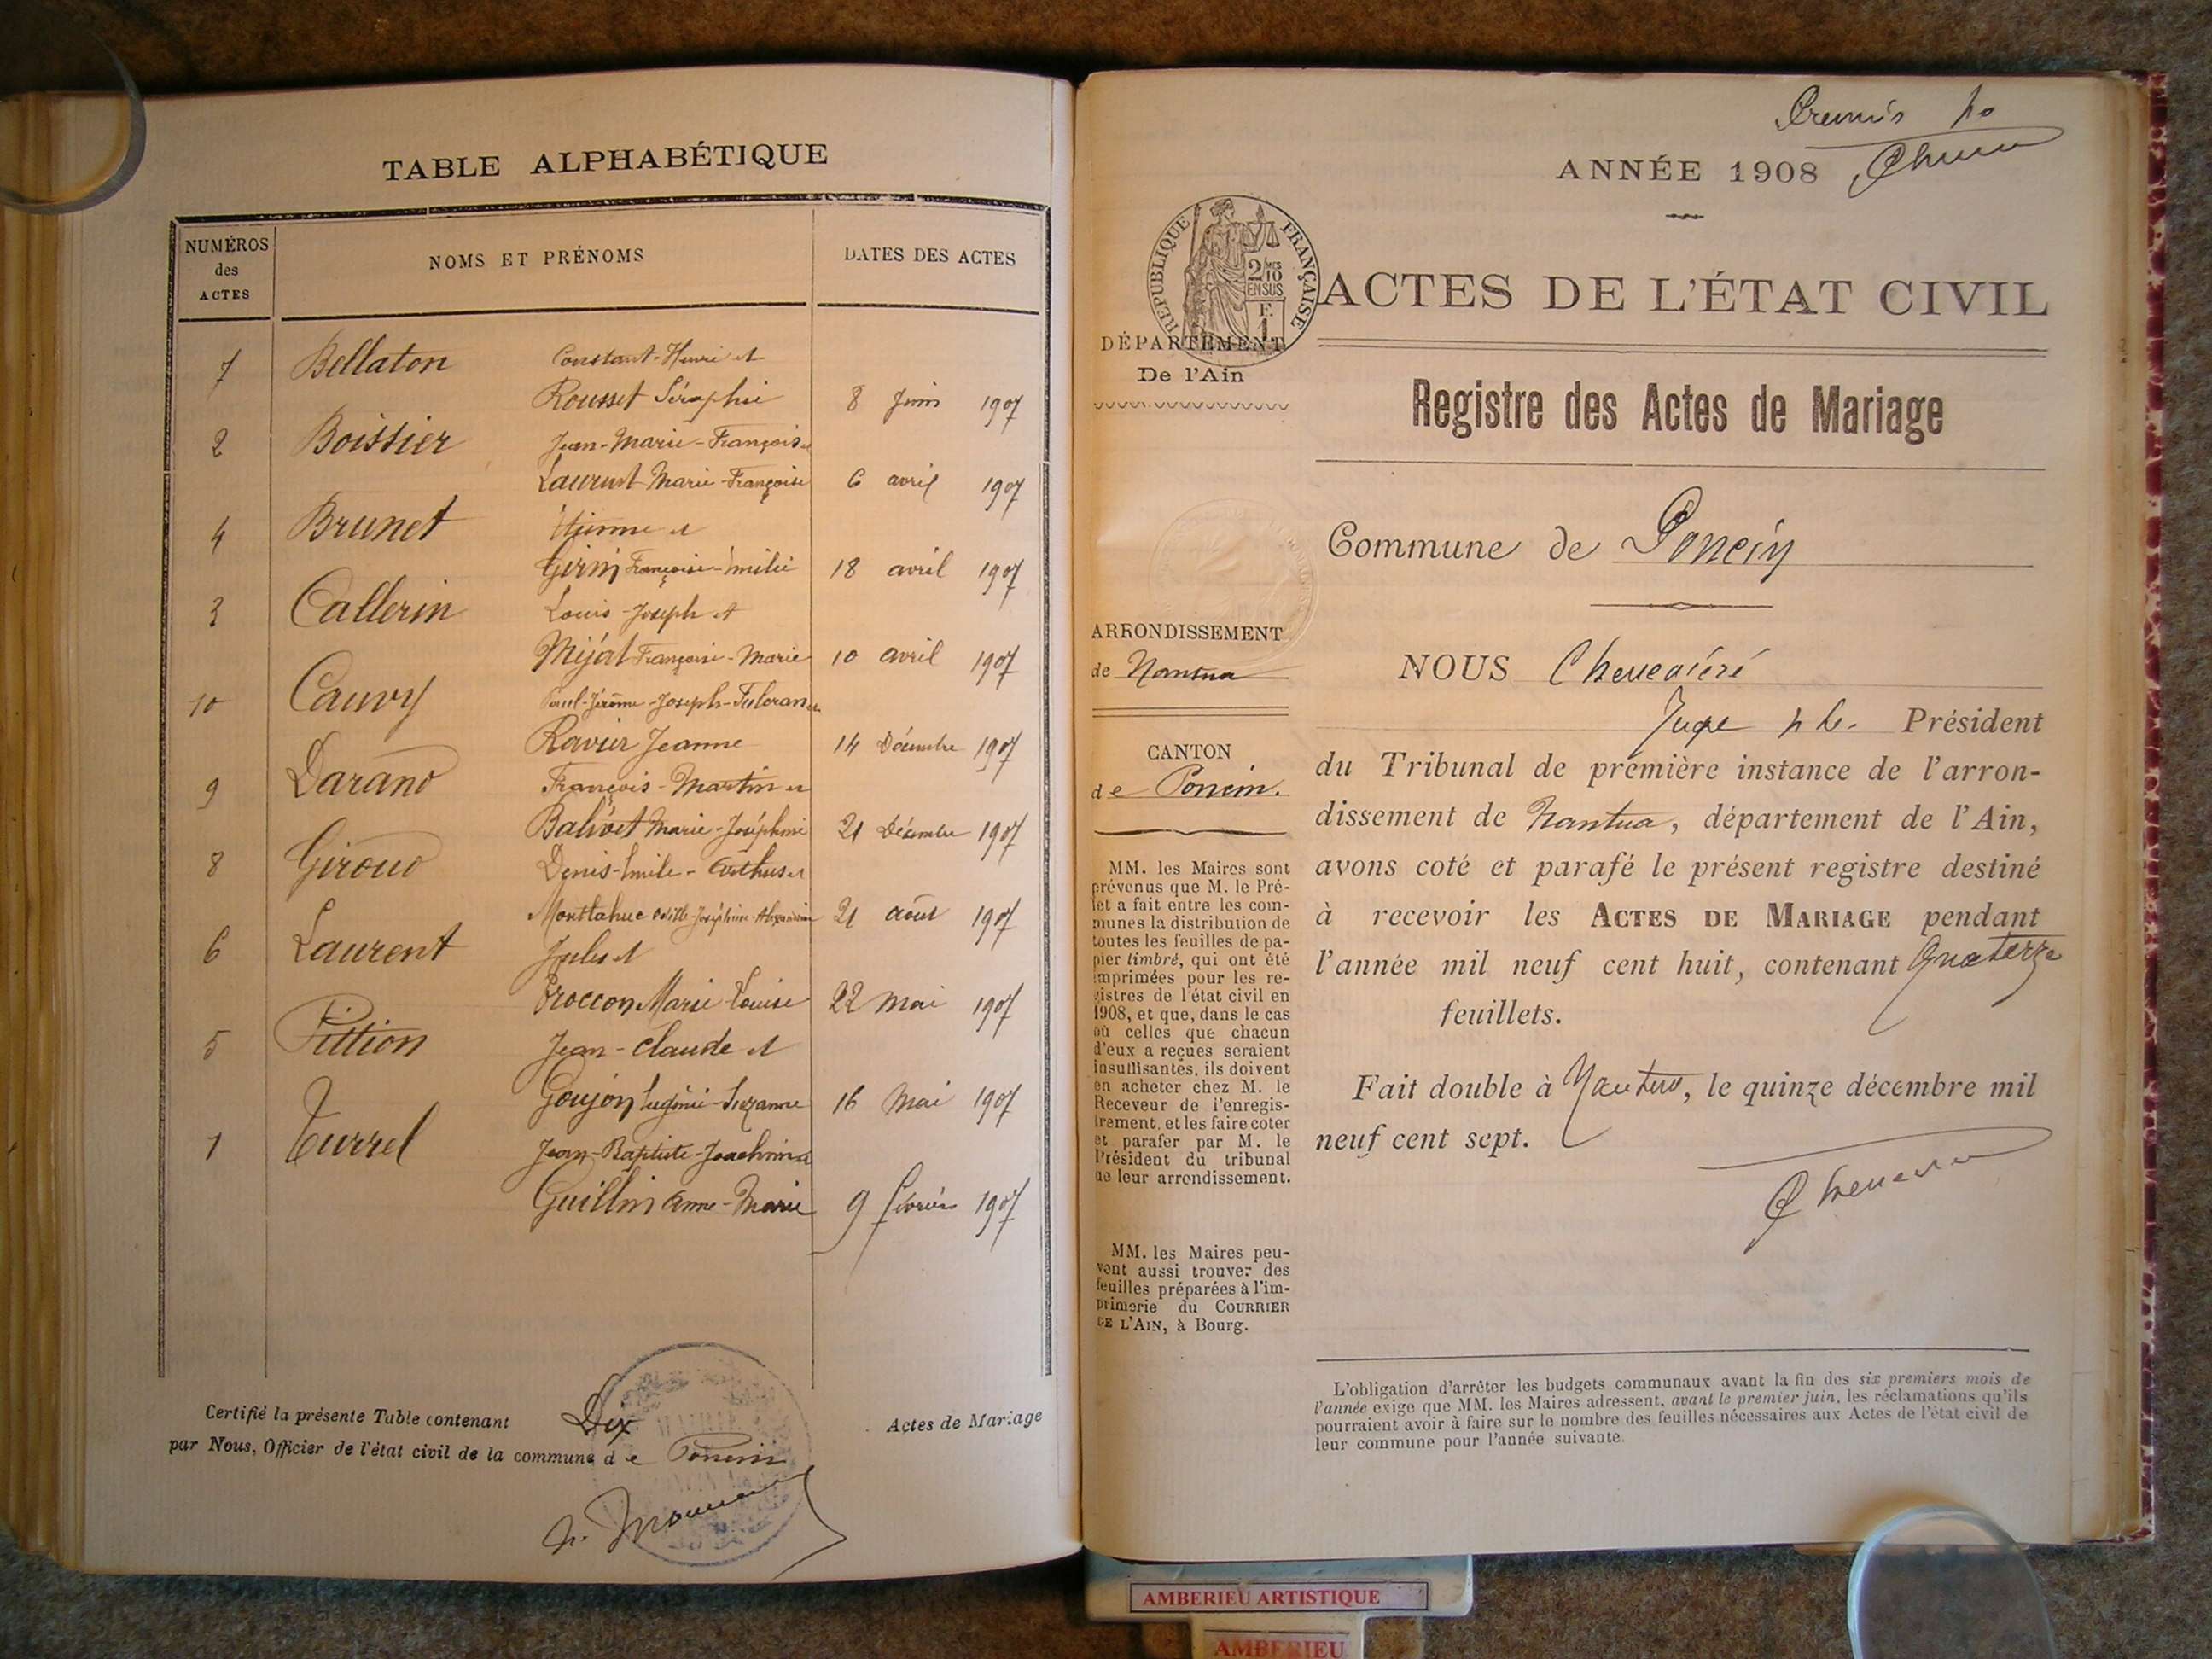 TABLE ALPHABÉTIQUE
NUMÉROS des ACTES
NOMS ET PRÉNOMS
DATES DES ACTES
7 Bellaton Constant-Henri et
Rousset Séraphie 8 Juin 1907
2 Boissier Jean-Marie-François et
Laurent Marie-Françoise 6 avril 1907
4 Brunet Étienne et
Girin Françoise-Émilie 18 avril 1907
3 Callerin Louis-Joseph et
Mijat Françoise-Marie 10 avril 1907
10 Cauvy Paul-Jérôme-Joseph-Fulcran et
Ravier Jeanne 14 Décembre 1907
9 Darand François-Martin et
Balivet Marie-Joséphine 21 Décembre 1907
8 Giroud Denis-Émile-Arthus et
Montlahuc Joséphine 21 août 1907
6 Laurent Jules et
Broccon Marie Louise 22 mai 1907
5 Pittion Jean-Claude et
Goujon Eugénie-Suzanne 16 Mai 1907
1 Turrel Jean-Baptiste-Joachim et
Guillin Anne-Marie 9 février 1907
Certifié la présente Table contenant Dix Actes de Mariage
par Nous, Officier de l'état civil de la commune de Poncin
ANNÉE 1908
RÉPUBLIQUE FRANÇAISE
2/10
EN SUS
F.
1
ACTES DE L'ÉTAT CIVIL
DÉPARTEMENT
De l'Ain
Registre des Actes de Mariage
Commune de Poncin
ARRONDISSEMENT
de Nantua
CANTON
de Poncin.
MM. les Maires sont
prévenus que M. le Pré-
fet a fait entre les com-
munes la distribution de
toutes les feuilles de pa-
pier timbré, qui ont été
imprimées pour les re-
gistres de l'état civil en
1908, et que, dans le cas
où celles que chacun
d'eux a reçues seraient
insuffisantes, ils doivent
en acheter chez M. le
Receveur de l'enregis-
trement, et les faire coter
et parafer par M. le
Président du tribunal
de leur arrondissement.
MM. les Maires peu-
vent aussi trouver des
feuilles préparées à l'im-
primerie du COURRIER
DE L'AIN, à Bourg.
NOUS
Juge Président
du Tribunal de première instance de l'arron-
dissement de Nantua, département de l'Ain,
avons coté et parafé le présent registre destiné
à recevoir les ACTES DE MARIAGE pendant
l'année mil neuf cent huit, contenant Quatorze
feuillets.
Fait double à Nantua, le quinze décembre mil
neuf cent sept.
L'obligation d'arrêter les budgets communaux avant la fin des six premiers mois de
l'année exige que MM. les Maires adressent, avant le premier juin, les réclamations qu'ils
pourraient avoir à faire sur le nombre des feuilles nécessaires aux Actes de l'état civil de
leur commune pour l'année suivante.
AMBERIEU ARTISTIQUE
AMBERIEU